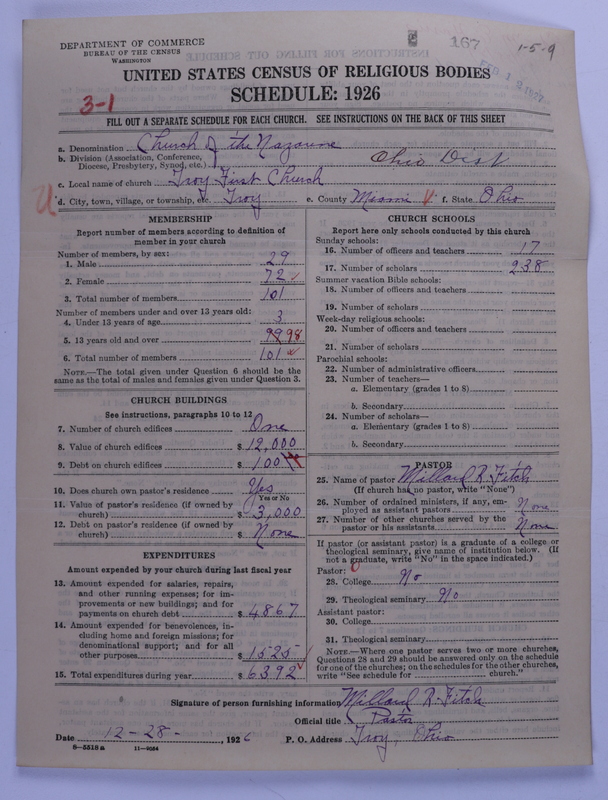 DEPARTMENT OF COMMERCE
BUREAU OF THE CENSUS
WASHINGTON
167
1-5-9
FEB 1 2 1927
UNITED STATES CENSUS OF RELIGIOUS BODIES
SCHEDULE: 1926
3-1
FILL OUT A SEPARATE SCHEDULE FOR EACH CHURCH. SEE INSTRUCTIONS ON THE BACK OF THIS SHEET
a. Denomination Church of the Nazarene
b. Division (Association, Conference, Diocese, Presbytery, Synod, etc.) Ohio Dist
c. Local name of church Troy First Church
d. City, town, village, or township, etc. Troy e. County Miami f. State Ohio
MEMBERSHIP
Report number of members according to definition of
member in your church
Number of members, by sex:
1. Male 29
2. Female 72
3. Total number of members 101
Number of members under and over 13 years old:
4. Under 13 years of age 3
5. 13 years old and over 99 98
6. Total number of members 101
NOTE.—The total given under Question 6 should be
same as the total of males and females given under Question 3.
CHURCH BUILDINGS
See instructions, paragraphs 10 to 12
7. Number of church edifices One
8. Value of church edifices $ 12,000
9. Debt on church edifices $ 100
10. Does church own pastor's residence Yes
Yes or No
11. Value of pastor's residence (if owned by
church) $ 3,000
12. Debt on pastor's residence (if owned by
church) $ None
EXPENDITURES
Amount expended by your church during last fiscal year
13. Amount expended for salaries, repairs,
and other running expenses; for im-
provements or new buildings; and for
payments on church debt $ 4867
14. Amount expended for benevolences, in-
cluding home and foreign missions; for
denominational support; and for all
other purposes $ 1525
15. Total expenditures during year $ 6392
CHURCH SCHOOLS
Report here only schools conducted by this church
Sunday schools:
16. Number of officers and teachers 17
17. Number of scholars 238
Summer vacation Bible schools:
18. Number of officers and teachers
19. Number of scholars
Week-day religious schools:
20. Number of officers and teachers
21. Number of scholars
Parochial schools:
22. Number of administrative officers
23. Number of teachers—
a. Elementary (grades 1 to 8)
b. Secondary
24. Number of scholars—
a. Elementary (grades 1 to 8)
b. Secondary
PASTOR
25. Name of pastor Millard R. Fitch
(If church has no pastor, write "None")
26. Number of ordained ministers, if any, em-
ployed as assistant pastors None
27. Number of other churches served by the
pastor or his assistants None
If pastor (or assistant pastor) is a graduate of a college or
theological seminary, give name of institution below. (If
not a graduate, write "No" in the space indicated.)
Pastor:
28. College No
29. Theological seminary No
Assistant pastor:
30. College
31. Theological seminary
NOTE.—Where one pastor serves two or more churches,
Questions 28 and 29 should be answered only on the schedule
for one of the churches; on the schedules for the other churches,
write "See schedule for church."
Signature of person furnishing information Millard R. Fitch
Official title Pastor
Date 12-28- , 1926 P. O. Address Troy, Ohio
8—5518a 11—9064